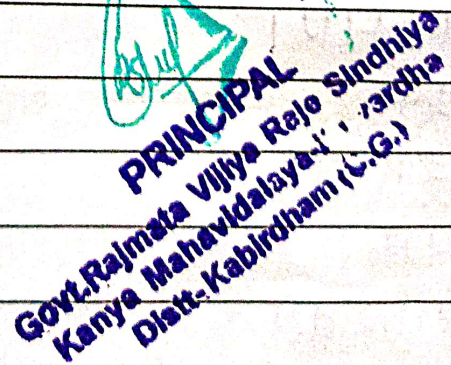 PRINCIPAL
Govt.Rajmata Vijiya Raje Sindhiya
Kanya Mahavidalaya
Distt-Kabirdham (C.G.)